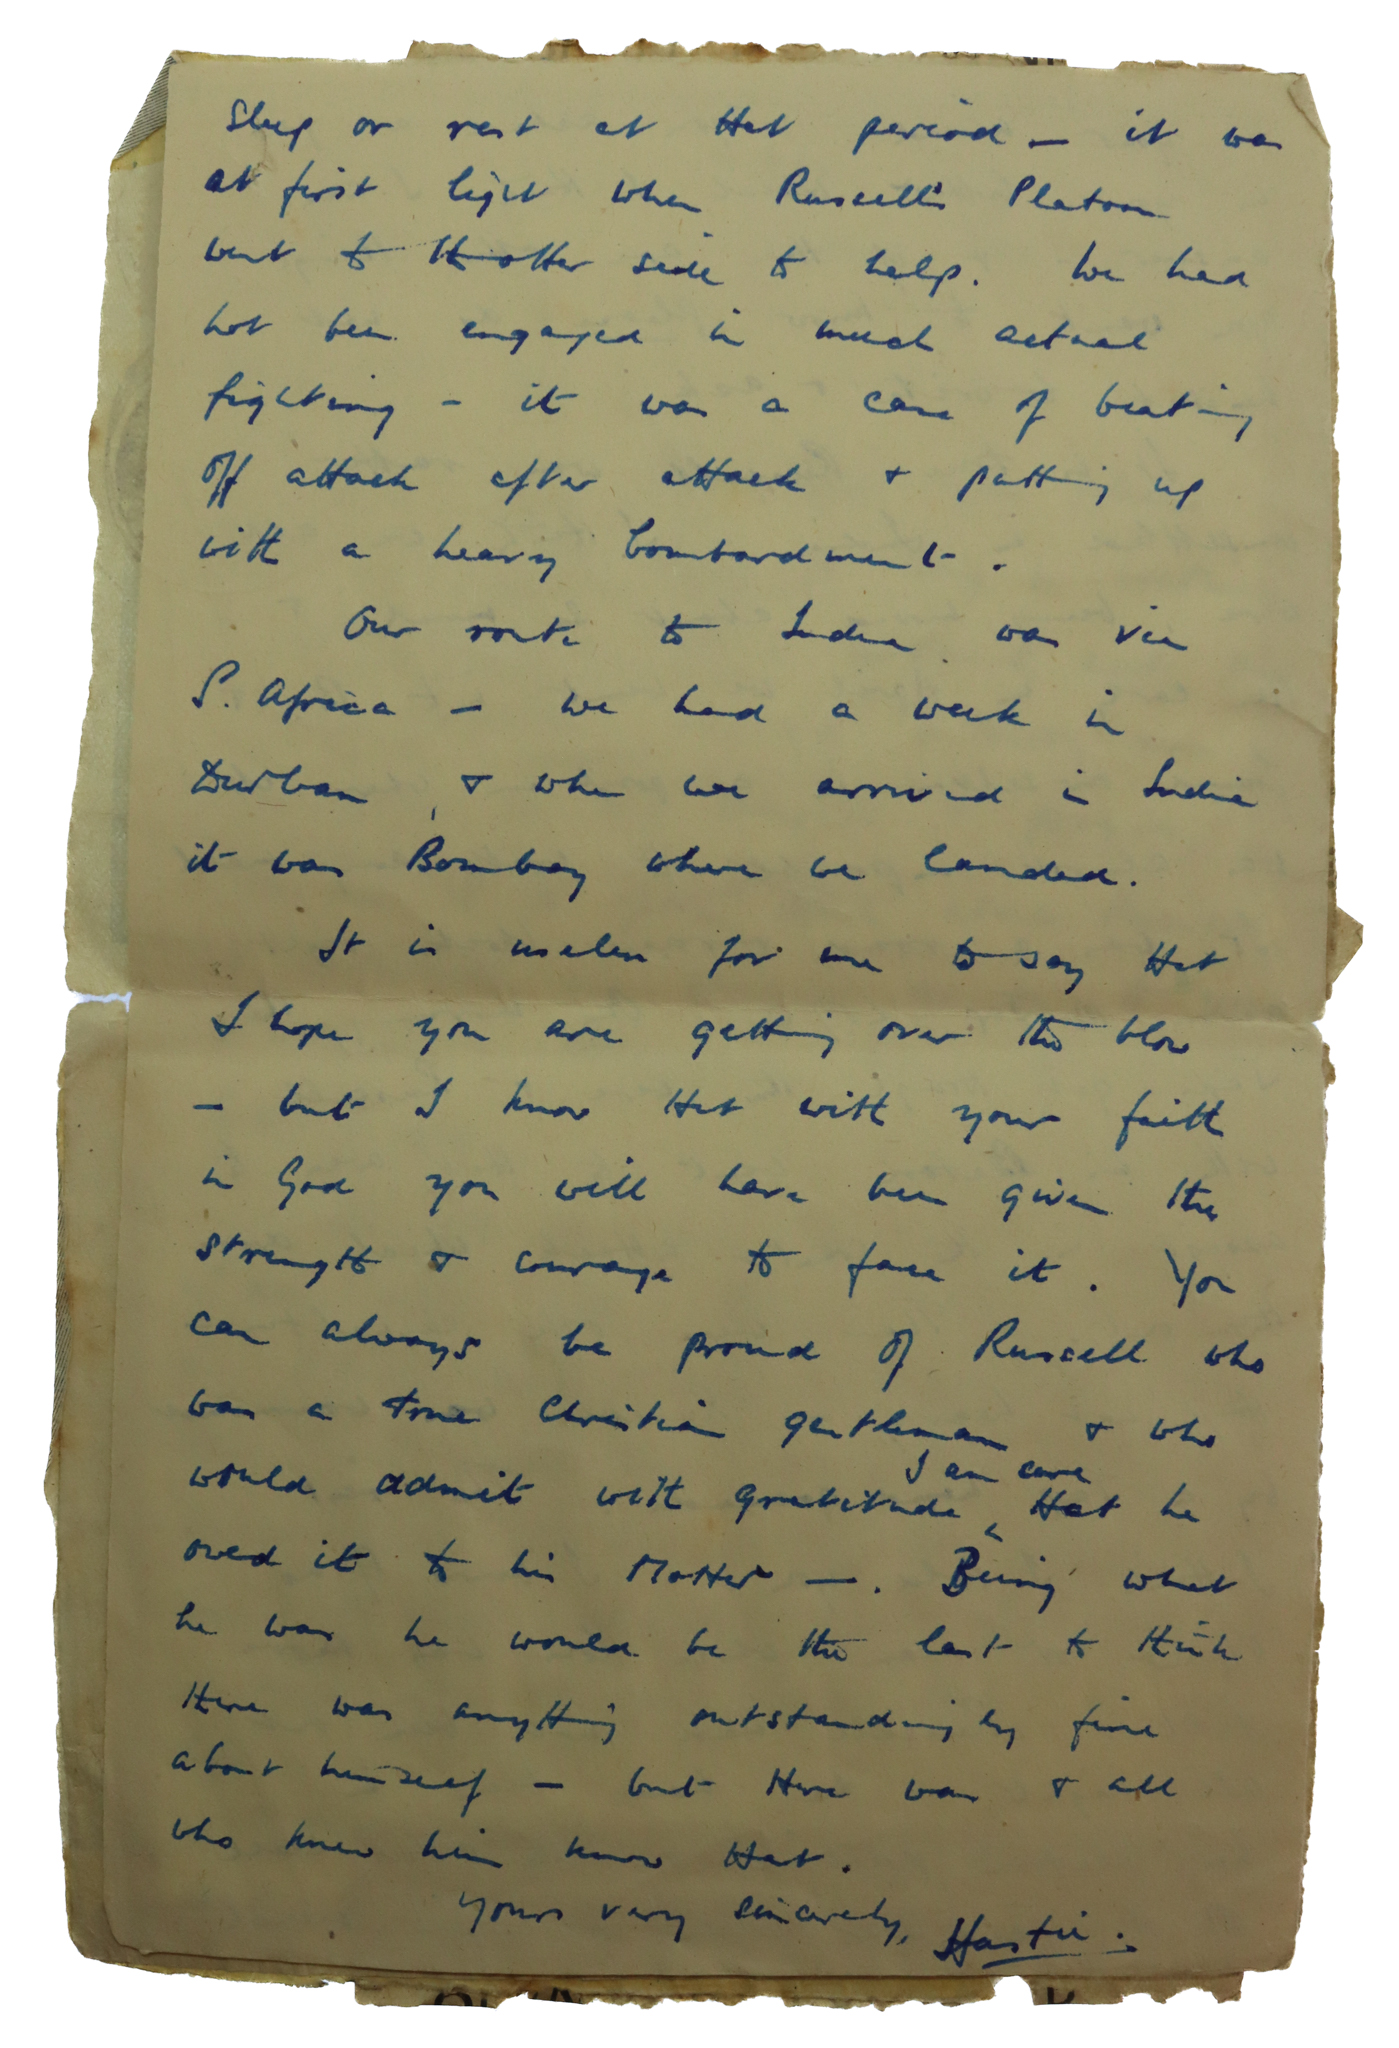 Sleep or rest at that period — it was
at first light when Russell's Platoon
went to the other side to help. We had
not been engaged in much actual
fighting – it was a case of beating
off attack after attack & putting up
with a heavy bombardment.
Our route to India was via
S. Africa – we had a week in
Durban, & when we arrived in India
it was Bombay where we landed.
It is useless for me to say that
I hope you are getting over the blow
– but I know that with your faith
in God you will have been given the
strength & courage to face it. You
can always be proud of Russell who
was a true Christian gentleman & who
would admit with gratitude I am sure that he
owed it to his Mother —. Being what
he was he would be the last to think
there was anything outstandingly fine
about himself – but there was & all
who knew him know that.
Yours very sincerely, Hastie.